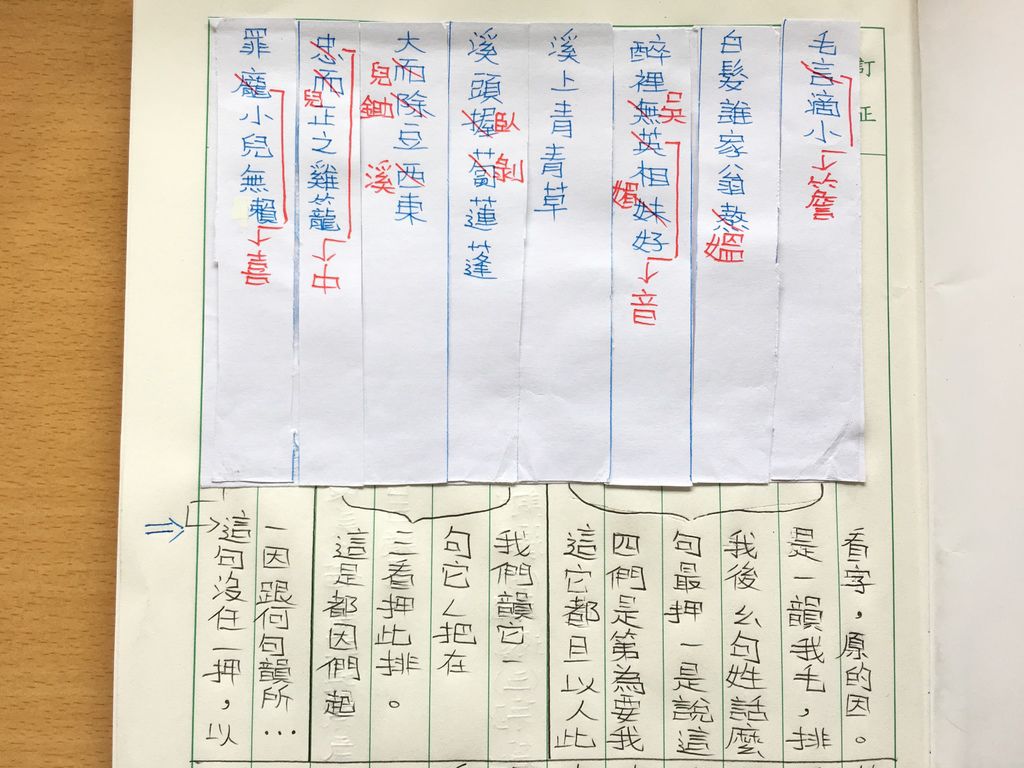 訂正
毛言滴小
簷
白髮誰家翁熬
媼
醉裡無英相妹好
吳
媚
音
溪上青青草
溪頭
蓮蓬
臥
剝
大而除豆西東
兒鋤
溪
忠而正之雞籠
兒
中
罪龐小兒無賴
喜
看字,原的因。
是一韻我毛,排
我後幺句姓話麼
句最押一是說這
四們是第為要我
這它都旦以人此
我們韻它一
句它ㄥ把在
三看押此排。
這是都因們起
一因跟何句韻所…
這句沒任一押,以